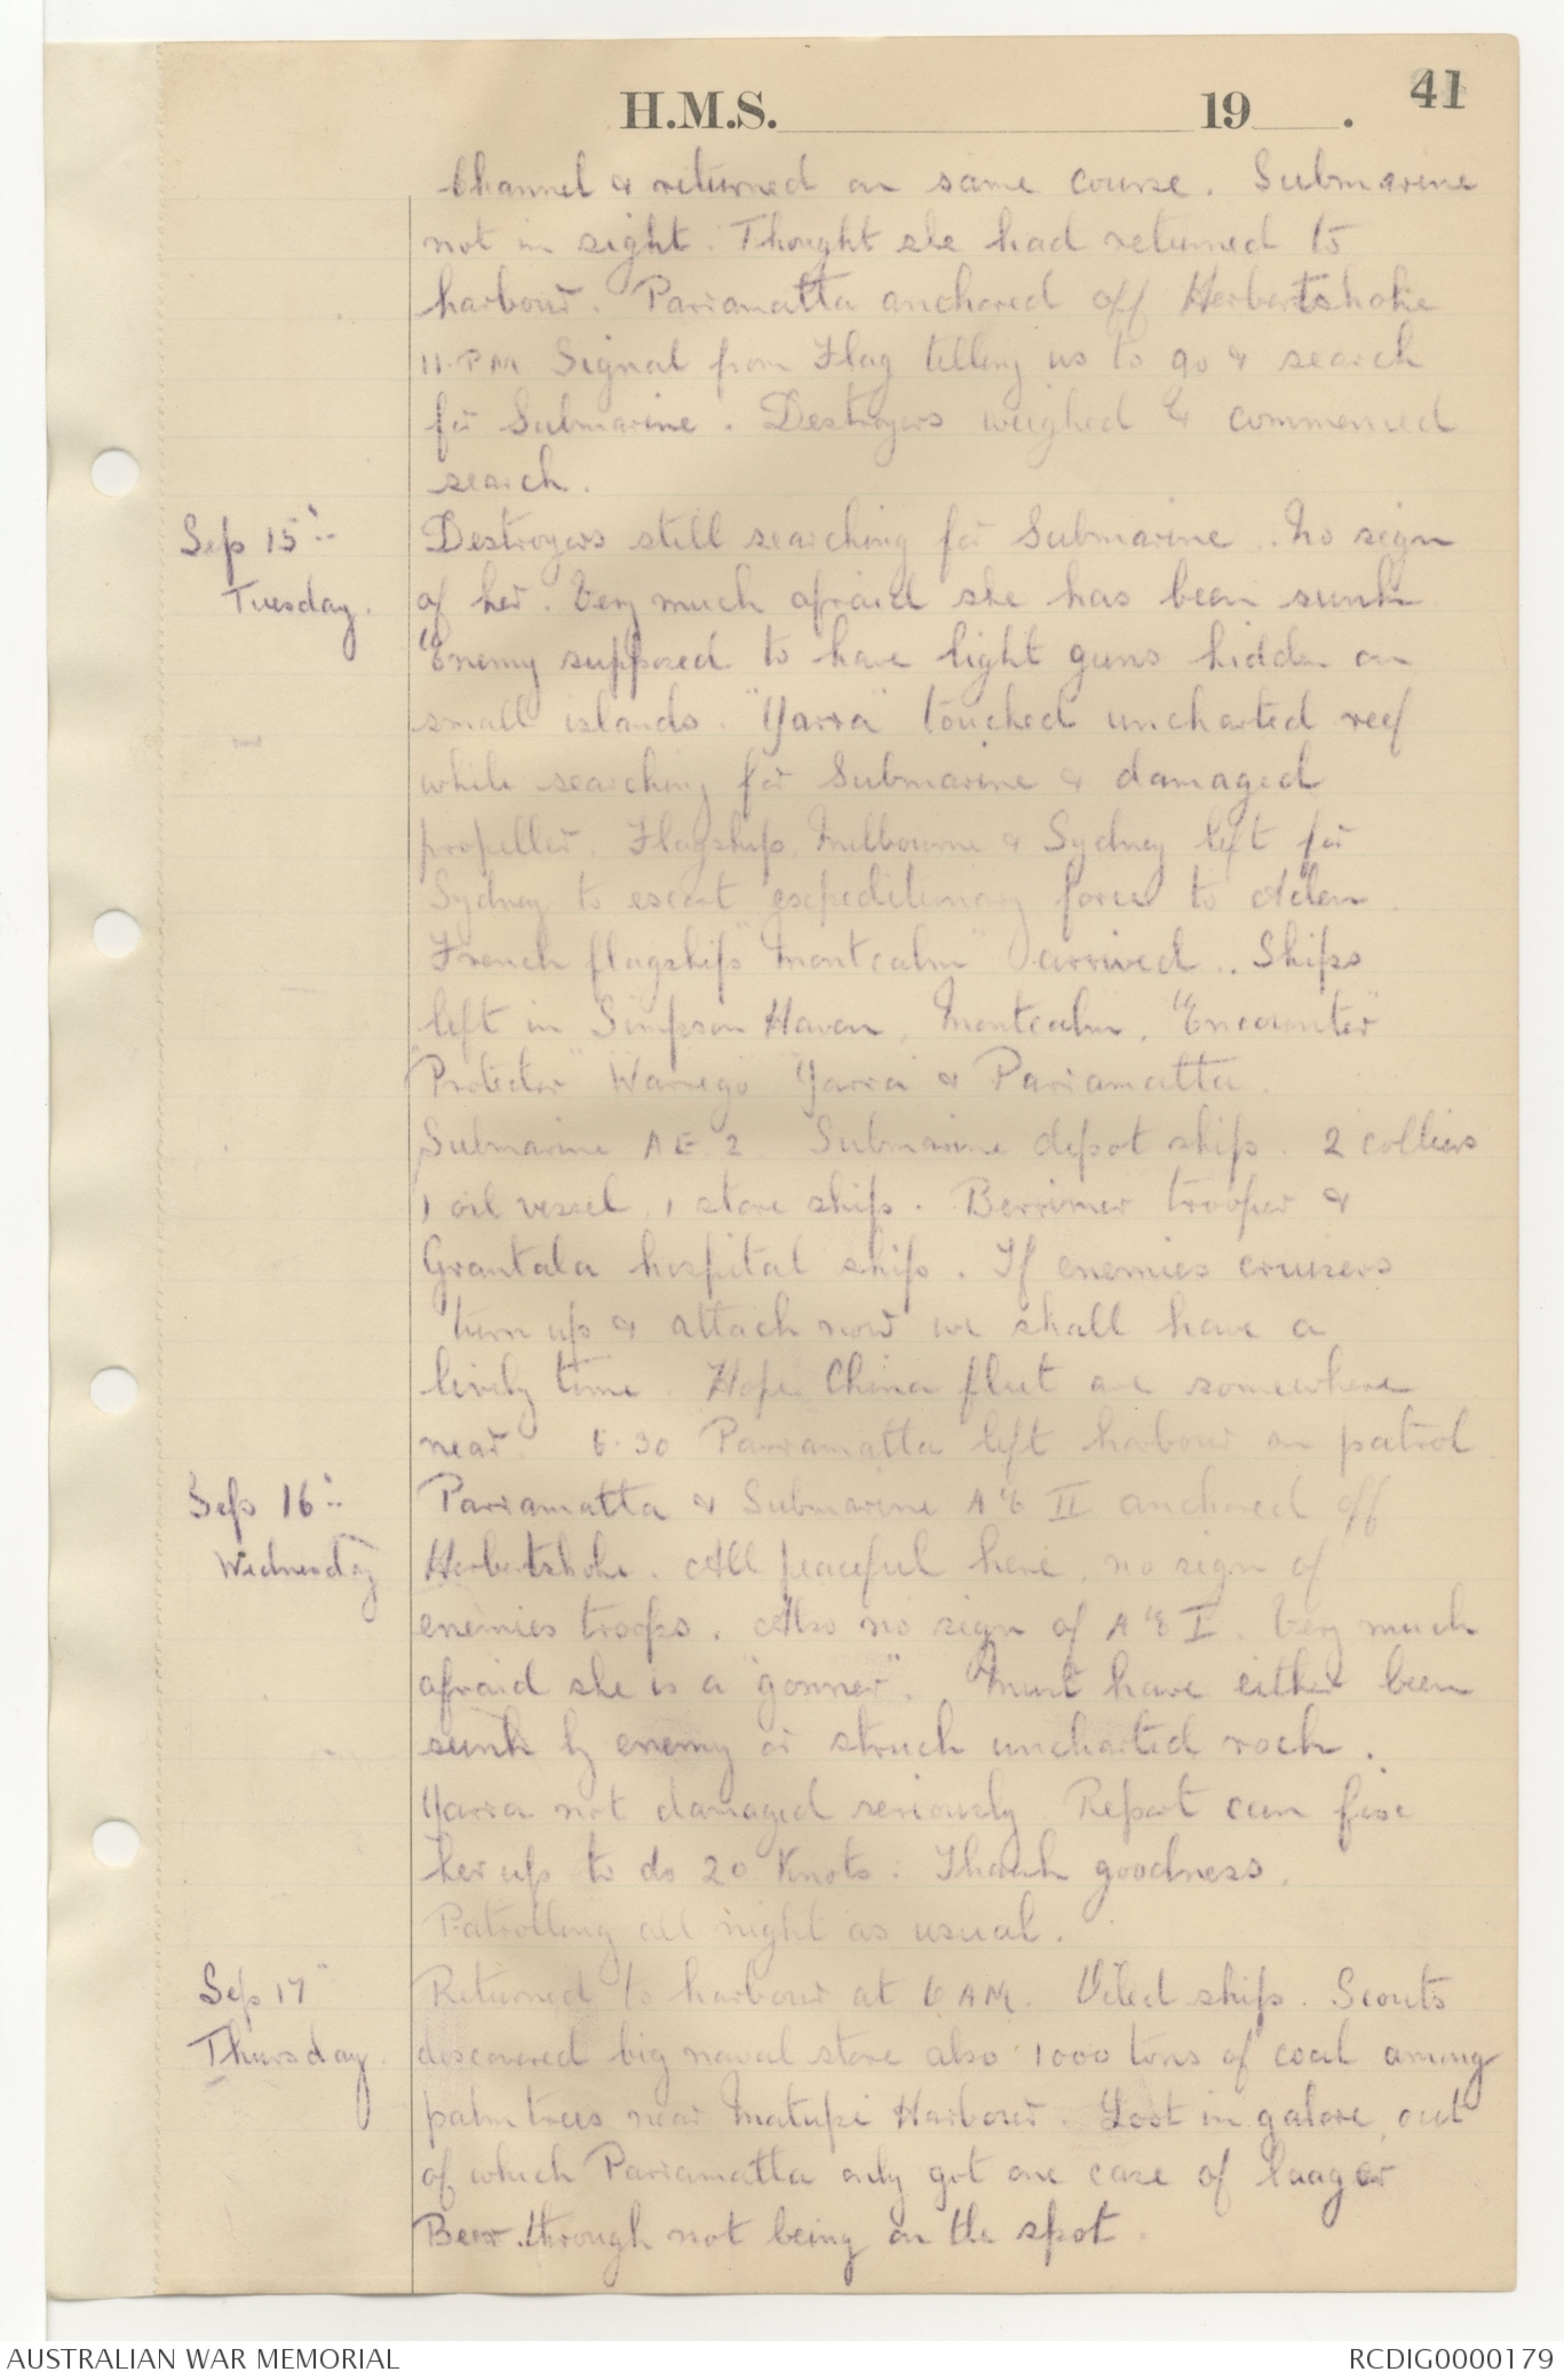 H.M.S. 19 .
41
Channel & returned on same course. Submarine
not in sight. Thought she had returned to
harbour. Parramatta anchored off Herbertshohe
11.PM Signal from Flag telling us to go & search
for Submarine. Destroyers weighed & commenced
search.
Sep 15th
Tuesday.
Destroyers still searching for Submarine.. No sign
of her. Very much afraid she has been sunk
Enemy supposed to have light guns hidden on
small islands. "Yarra" touched uncharted reef
while searching for Submarine & damaged
propeller. Flagship, Melbourne & Sydney left for
Sydney to escort expeditionary force to Aden.
French flagship "Montcalm" arrived.. Ships
left in Simpson Haven, Montcalm, "Encounter"
"Protector" Warrego Yarra & Parramatta.
Submarine AE 2 Submarine depot ship. 2 colliers
1 oil vessel, 1 store ship. Berrimer trooper &
Grantala hospital ship. If enemies cruisers
turn up & attack now we shall have a
lively time. Hope China fleet are somewhere
near. 6.30 Parramatta left harbour on patrol
Sep 16th
Wednesday
Parramatta & Submarine AE II anchored off
Herbertshohe. All peaceful here, no sign of
enemies troops. Also no sign of AE I. Very much
afraid she is a "gonner". Must have either been
sunk by enemy or struck uncharted rock.
Yarra not damaged seriously. Report can fix
her up to do 20 Knots. Thank goodness.
Patrolling all night as usual.
Sep 17"
Thursday.
Returned to harbour at 6 AM. Oiled ship. Scouts
discovered big naval store also 1000 tons of coal among
palm trees near Matupi Harbour. Loot in galore, out
of which Parramatta only got one case of laager
Beer through not being on the spot.
AUSTRALIAN WAR MEMORIAL
RCDIG0000179